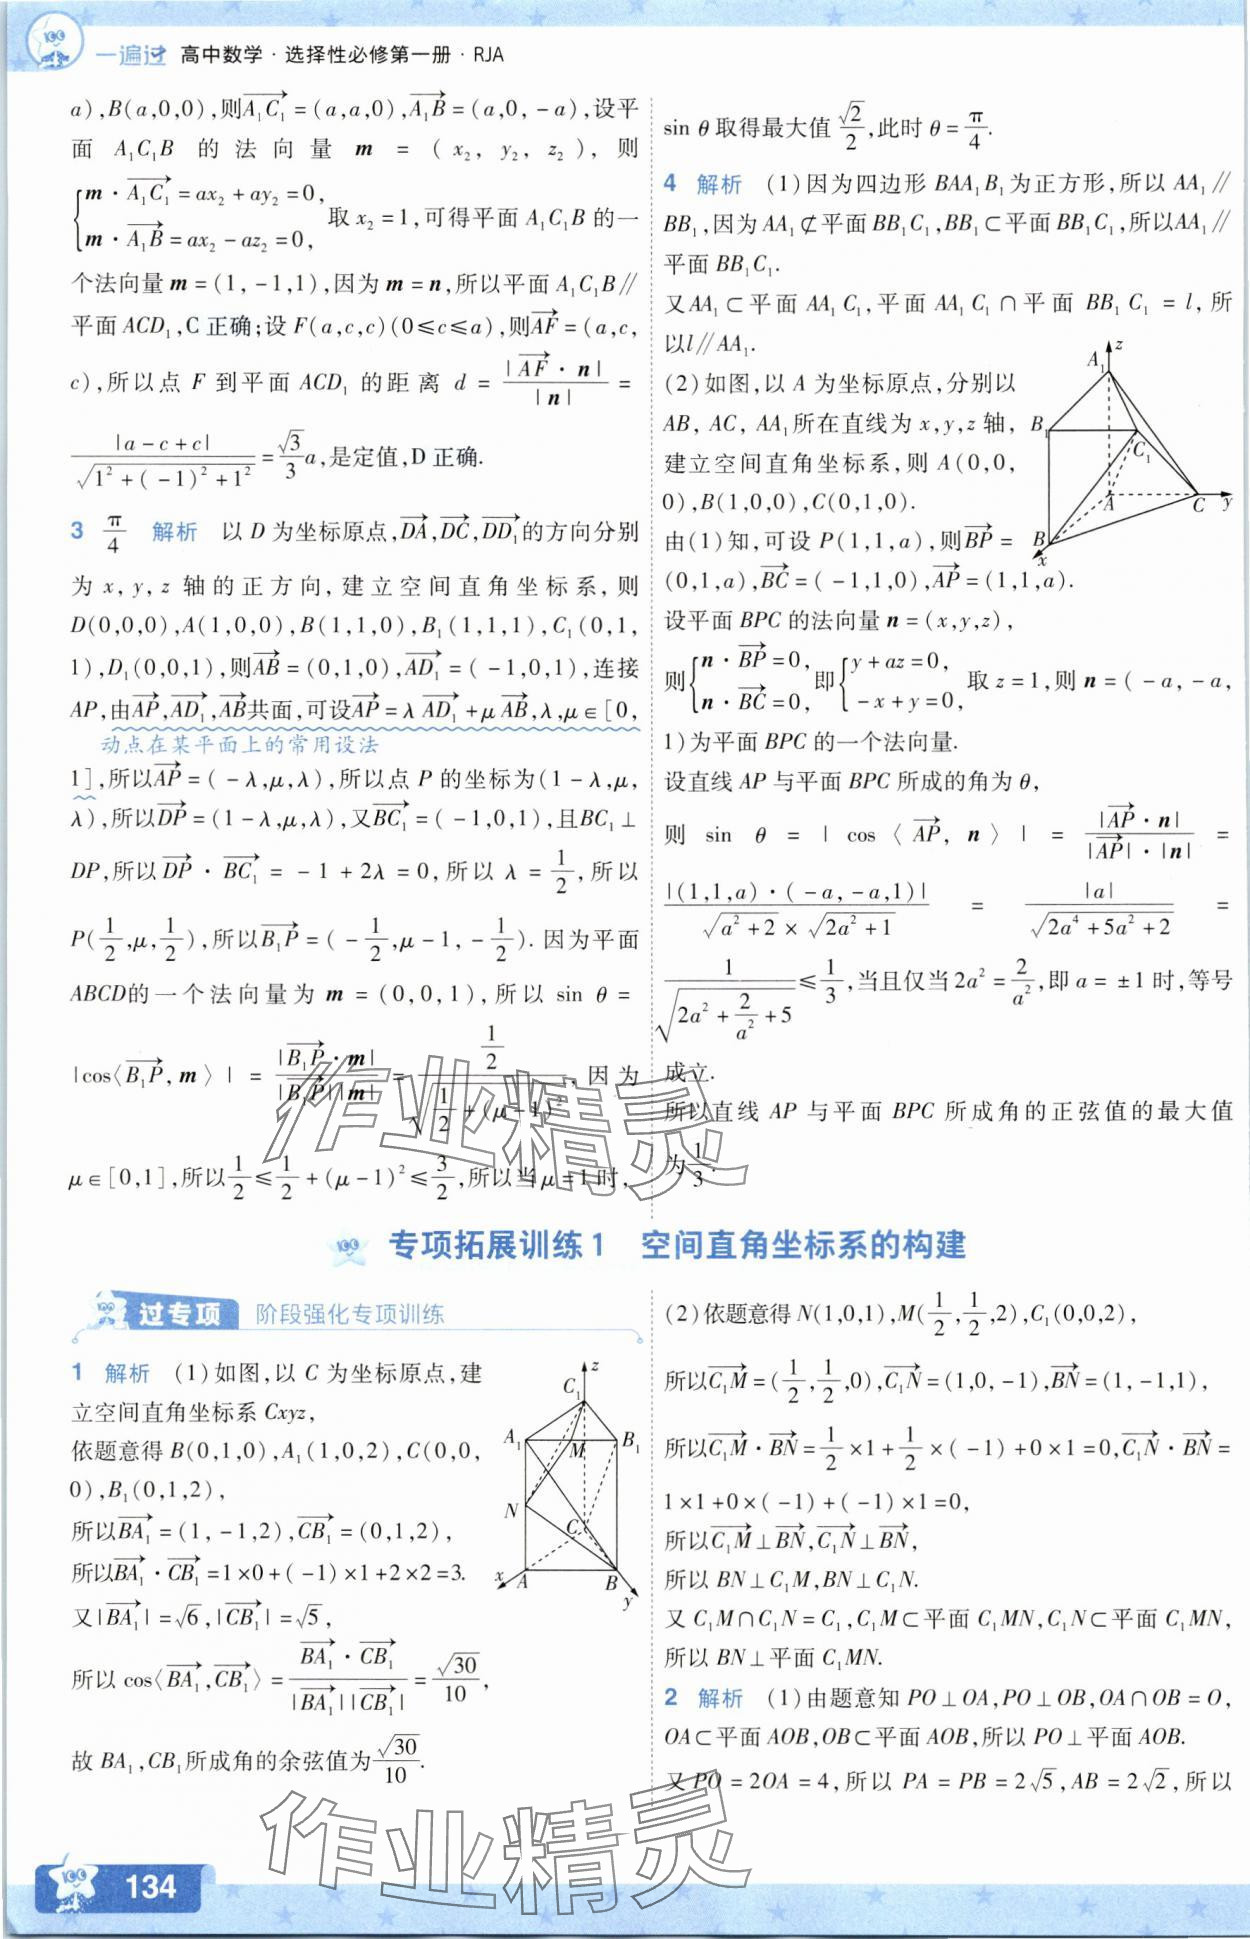 一遍过 高中数学·选择性必修第一册·RJA
a),B(a,0,0),则$\overrightarrow{A_1C_1}$=(a,a,0),$\overrightarrow{A_1B}$=(a,0,-a),设平
面 A₁C₁B 的法向量 m = (x₂, y₂, z₂),则
{m·$\overrightarrow{A_1C_1}$=ax₂+ay₂=0,
m·$\overrightarrow{A_1B}$=ax₂-az₂=0, 取 x₂=1,可得平面 A₁C₁B 的一
个法向量 m=(1,-1,1),因为 m=n,所以平面 A₁C₁B∥
平面 ACD₁,C 正确;设 F(a,c,c)(0≤c≤a),则$\overrightarrow{AF}$=(a,c,
c),所以点 F 到平面 ACD₁ 的距离 d = $\frac{|\overrightarrow{AF}·n|}{|n|}$ =
$\frac{|a-c+c|}{\sqrt{1^2+(-1)^2+1^2}}=\frac{\sqrt{3}}{3}a$,是定值,D 正确.
3 $\frac{π}{4}$ 解析 以 D 为坐标原点,$\overrightarrow{DA},\overrightarrow{DC},\overrightarrow{DD_1}$的方向分别
为 x, y, z 轴的正方向,建立空间直角坐标系,则
D(0,0,0),A(1,0,0),B(1,1,0),B₁(1,1,1),C₁(0,1,
1),D₁(0,0,1),则$\overrightarrow{AB}$=(0,1,0),$\overrightarrow{AD_1}$=(-1,0,1),连接
AP,由$\overrightarrow{AP},\overrightarrow{AD_1},\overrightarrow{AB}$共面,可设$\overrightarrow{AP}$=λ$\overrightarrow{AD_1}$+μ$\overrightarrow{AB}$,λ,μ∈[0,
动点在某平面上的常用设法
1],所以$\overrightarrow{AP}$=(-λ,μ,λ),所以点 P 的坐标为(1-λ,μ,
λ),所以$\overrightarrow{DP}$=(1-λ,μ,λ),又$\overrightarrow{BC_1}$=(-1,0,1),且BC₁⊥
DP,所以$\overrightarrow{DP}$·$\overrightarrow{BC_1}$=-1+2λ=0,所以 λ=$\frac{1}{2}$,所以
P($\frac{1}{2}$,μ,$\frac{1}{2}$),所以$\overrightarrow{B_1P}$=(-$\frac{1}{2}$,μ-1,-$\frac{1}{2}$). 因为平面
ABCD的一个法向量为 m=(0,0,1),所以 sin θ=
|cos⟨$\overrightarrow{B_1P}$,m⟩| = $\frac{|\overrightarrow{B_1P}·m|}{|\overrightarrow{B_1P}||m|}=\frac{\frac{1}{2}}{\sqrt{\frac{1}{2}+(μ-1)^2}}$,因为
μ∈[0,1],所以$\frac{1}{2}$≤$\frac{1}{2}$+(μ-1)²≤$\frac{3}{2}$,所以当μ=1时,
sin θ取得最大值$\frac{\sqrt{2}}{2}$,此时θ=$\frac{π}{4}$.
4 解析 (1)因为四边形 BAA₁B₁为正方形,所以 AA₁∥
BB₁,因为 AA₁⊄平面 BB₁C₁,BB₁⊂平面 BB₁C₁,所以AA₁∥
平面 BB₁C₁.
又AA₁⊂平面 AA₁C₁,平面 AA₁C₁∩平面 BB₁C₁=l,所
以l∥AA₁.
(2)如图,以 A 为坐标原点,分别以
AB, AC, AA₁所在直线为 x,y,z 轴,
建立空间直角坐标系,则 A(0,0,
0),B(1,0,0),C(0,1,0).
z
A₁
B₁
C₁
A
C
y
B
x
由(1)知,可设 P(1,1,a),则$\overrightarrow{BP}$=
(0,1,a),$\overrightarrow{BC}$=(-1,1,0),$\overrightarrow{AP}$=(1,1,a).
设平面 BPC 的法向量 n=(x,y,z),
则{n·$\overrightarrow{BP}$=0, n·$\overrightarrow{BC}$=0, 即{y+az=0, -x+y=0, 取 z=1,则 n=(-a,-a,
1)为平面 BPC 的一个法向量.
设直线 AP 与平面 BPC 所成的角为 θ,
则 sin θ = |cos⟨$\overrightarrow{AP}$, n⟩| = $\frac{|\overrightarrow{AP}·n|}{|\overrightarrow{AP}|·|n|}$ =
$\frac{|(1,1,a)·(-a,-a,1)|}{\sqrt{a^2+2}×\sqrt{2a^2+1}}$ = $\frac{|a|}{\sqrt{2a^4+5a^2+2}}$ =
$\frac{1}{\sqrt{2a^2+\frac{2}{a^2}+5}}≤\frac{1}{3}$,当且仅当2a²=$\frac{2}{a^2}$,即 a=±1时,等号
成立.
所以直线 AP 与平面 BPC 所成角的正弦值的最大值
为$\frac{1}{3}$.
作业精灵
专项拓展训练1 空间直角坐标系的构建
过专项 阶段强化专项训练
1 解析 (1)如图,以 C 为坐标原点,建
立空间直角坐标系 Cxyz,
依题意得 B(0,1,0),A₁(1,0,2),C(0,0,
0),B₁(0,1,2),
所以$\overrightarrow{BA_1}$=(1,-1,2),$\overrightarrow{CB_1}$=(0,1,2),
所以$\overrightarrow{BA_1}$·$\overrightarrow{CB_1}$=1×0+(-1)×1+2×2=3.
又|$\overrightarrow{BA_1}$|=√6,|$\overrightarrow{CB_1}$|=√5,
所以 cos⟨$\overrightarrow{BA_1},\overrightarrow{CB_1}$⟩=$\frac{\overrightarrow{BA_1}·\overrightarrow{CB_1}}{|\overrightarrow{BA_1}||\overrightarrow{CB_1}|}=\frac{\sqrt{30}}{10}$,
故 BA₁,CB₁所成角的余弦值为$\frac{\sqrt{30}}{10}$.
z
C₁
A₁
M
B₁
N
C
x
A
B
y
(2)依题意得 N(1,0,1),M($\frac{1}{2}$,$\frac{1}{2}$,2),C₁(0,0,2),
所以$\overrightarrow{C_1M}$=($\frac{1}{2}$,$\frac{1}{2}$,0),$\overrightarrow{C_1N}$=(1,0,-1),$\overrightarrow{BN}$=(1,-1,1),
所以$\overrightarrow{C_1M}$·$\overrightarrow{BN}$=$\frac{1}{2}$×1+$\frac{1}{2}$×(-1)+0×1=0,$\overrightarrow{C_1N}$·$\overrightarrow{BN}$=
1×1+0×(-1)+(-1)×1=0,
所以$\overrightarrow{C_1M}$⊥$\overrightarrow{BN}$,$\overrightarrow{C_1N}$⊥$\overrightarrow{BN}$,
所以 BN⊥C₁M,BN⊥C₁N.
又 C₁M∩C₁N=C₁,C₁M⊂平面 C₁MN,C₁N⊂平面 C₁MN,
所以 BN⊥平面 C₁MN.
2 解析 (1)由题意知 PO⊥OA,PO⊥OB,OA∩OB=O,
OA⊂平面 AOB,OB⊂平面 AOB,所以 PO⊥平面 AOB.
又 PO=2OA=4,所以 PA=PB=2√5,AB=2√2,所以
作业精灵
134